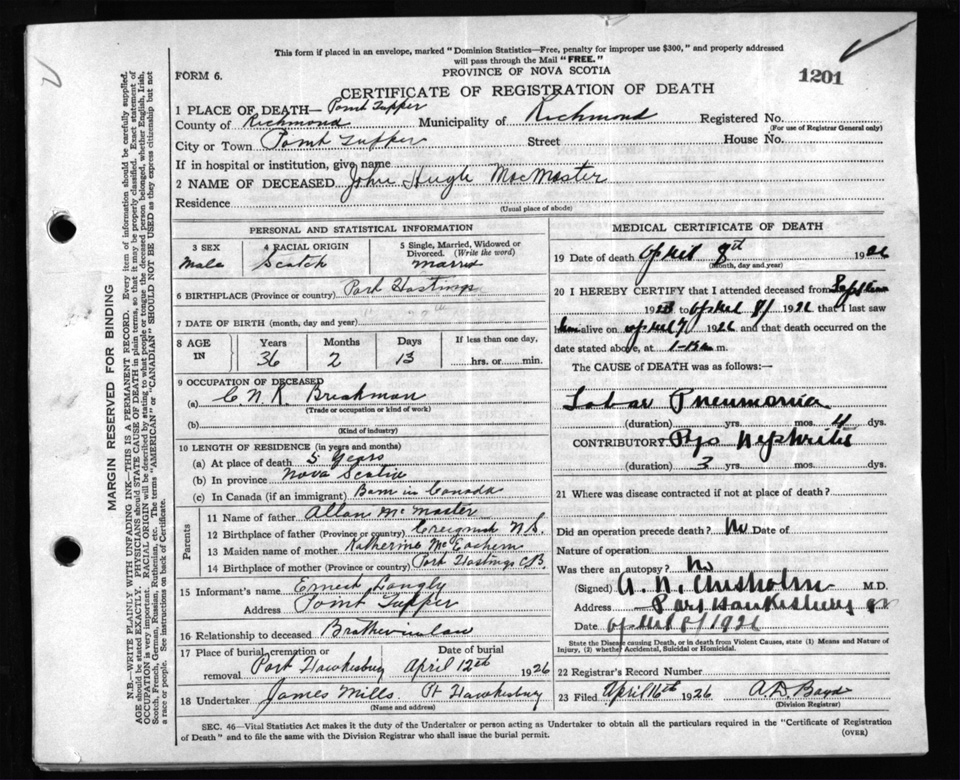 This form if placed in an envelope, marked "Dominion Statistics—Free, penalty for improper use $300," and properly addressed
will pass through the Mail "FREE."
FORM 6.
PROVINCE OF NOVA SCOTIA
1201
CERTIFICATE OF REGISTRATION OF DEATH
1 PLACE OF DEATH— Point Tupper
County of Richmond Municipality of Richmond Registered No.
(For use of Registrar General only)
City or Town Point Tupper Street House No.
If in hospital or institution, give name
2 NAME OF DECEASED John Hugh MacMaster
Residence
(Usual place of abode)
PERSONAL AND STATISTICAL INFORMATION
3 SEX 4 RACIAL ORIGIN 5 Single, Married, Widowed or Divorced. (Write the word)
Male Scotch Married
6 BIRTHPLACE (Province or country) Port Hastings
7 DATE OF BIRTH (month, day and year)
8 AGE IN Years Months Days If less than one day,
36 2 13 hrs. or min.
9 OCCUPATION OF DECEASED
(a) C.N.R. Breakman
(Trade or occupation or kind of work)
(b)
(Kind of industry)
10 LENGTH OF RESIDENCE (in years and months)
(a) At place of death 5 Years
(b) In province Nova Scotia
(c) In Canada (if an immigrant) Born in Canada
Parents
11 Name of father Allan McMaster
12 Birthplace of father (Province or country) Creignish N.S.
13 Maiden name of mother Katherine McEachern
14 Birthplace of mother (Province or country) Port Hastings C.B.
15 Informant's name Ernest Langly
Address Point Tupper
16 Relationship to deceased Brotherinlaw
17 Place of burial, cremation or removal Port Hawkesbury Date of burial April 12th 1926
18 Undertaker James Mills Pt Hawkesbury
(Name and address)
MEDICAL CERTIFICATE OF DEATH
19 Date of death April 8th 1926
(Month, day and year)
20 I HEREBY CERTIFY that I attended deceased from
192 to April 8/ 1926 that I last saw
him alive on April 7/ 1926 and that death occurred on
date stated above, at m.
The CAUSE of DEATH was as follows:—
Lobar Pneumonia
(duration) yrs. mos. 4 dys.
CONTRIBUTORY Nephritis
(duration) 3 yrs. mos. dys.
21 Where was disease contracted if not at place of death?
Did an operation precede death? No Date of
Nature of operation
Was there an autopsy? No
(Signed) A. N. Chisholm M.D.
Address Port Hawkesbury
Date April 8/1926
State the Disease causing Death, or in death from Violent Causes, state (1) Means and Nature of
Injury, (2) whether Accidental, Suicidal or Homicidal.
22 Registrar's Record Number
23 Filed April 16th 1926 A.D. Boyd
(Division Registrar)
SEC. 46—Vital Statistics Act makes it the duty of the Undertaker or person acting as Undertaker to obtain all the particulars required in the "Certificate of Registration
of Death" and to file the same with the Division Registrar who shall issue the burial permit.
(OVER)
MARGIN RESERVED FOR BINDING
N.B.—WRITE PLAINLY WITH UNFADING INK—THIS IS A PERMANENT RECORD. Every item of information should be carefully supplied.
AGE should be stated EXACTLY. PHYSICIANS should STATE CAUSE OF DEATH in plain terms, so that it may be properly classified. Exact statement of
OCCUPATION is very important. RACIAL ORIGIN will be described by stating to what people or tongue the deceased person belonged, whether English, Irish,
Scotch, French, German, Russian, Ruthenian, etc. The terms "AMERICAN" or "CANADIAN" SHOULD NOT BE USED as they express citizenship but not
a race or people. See instructions on back of Certificate.